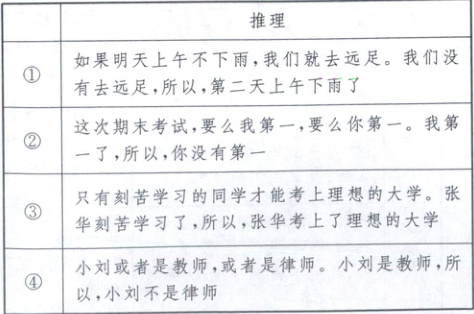 推理
① 如果明天上午不下雨,我们就去远足。我们没
有去远足,所以,第二天上午下雨了
② 这次期末考试,要么我第一,要么你第一。我第
一了,所以,你没有第一
③ 只有刻苦学习的同学才能考上理想的大学。张
华刻苦学习了,所以,张华考上了理想的大学
④ 小刘或者是教师,或者是律师。小刘是教师,所
以,小刘不是律师